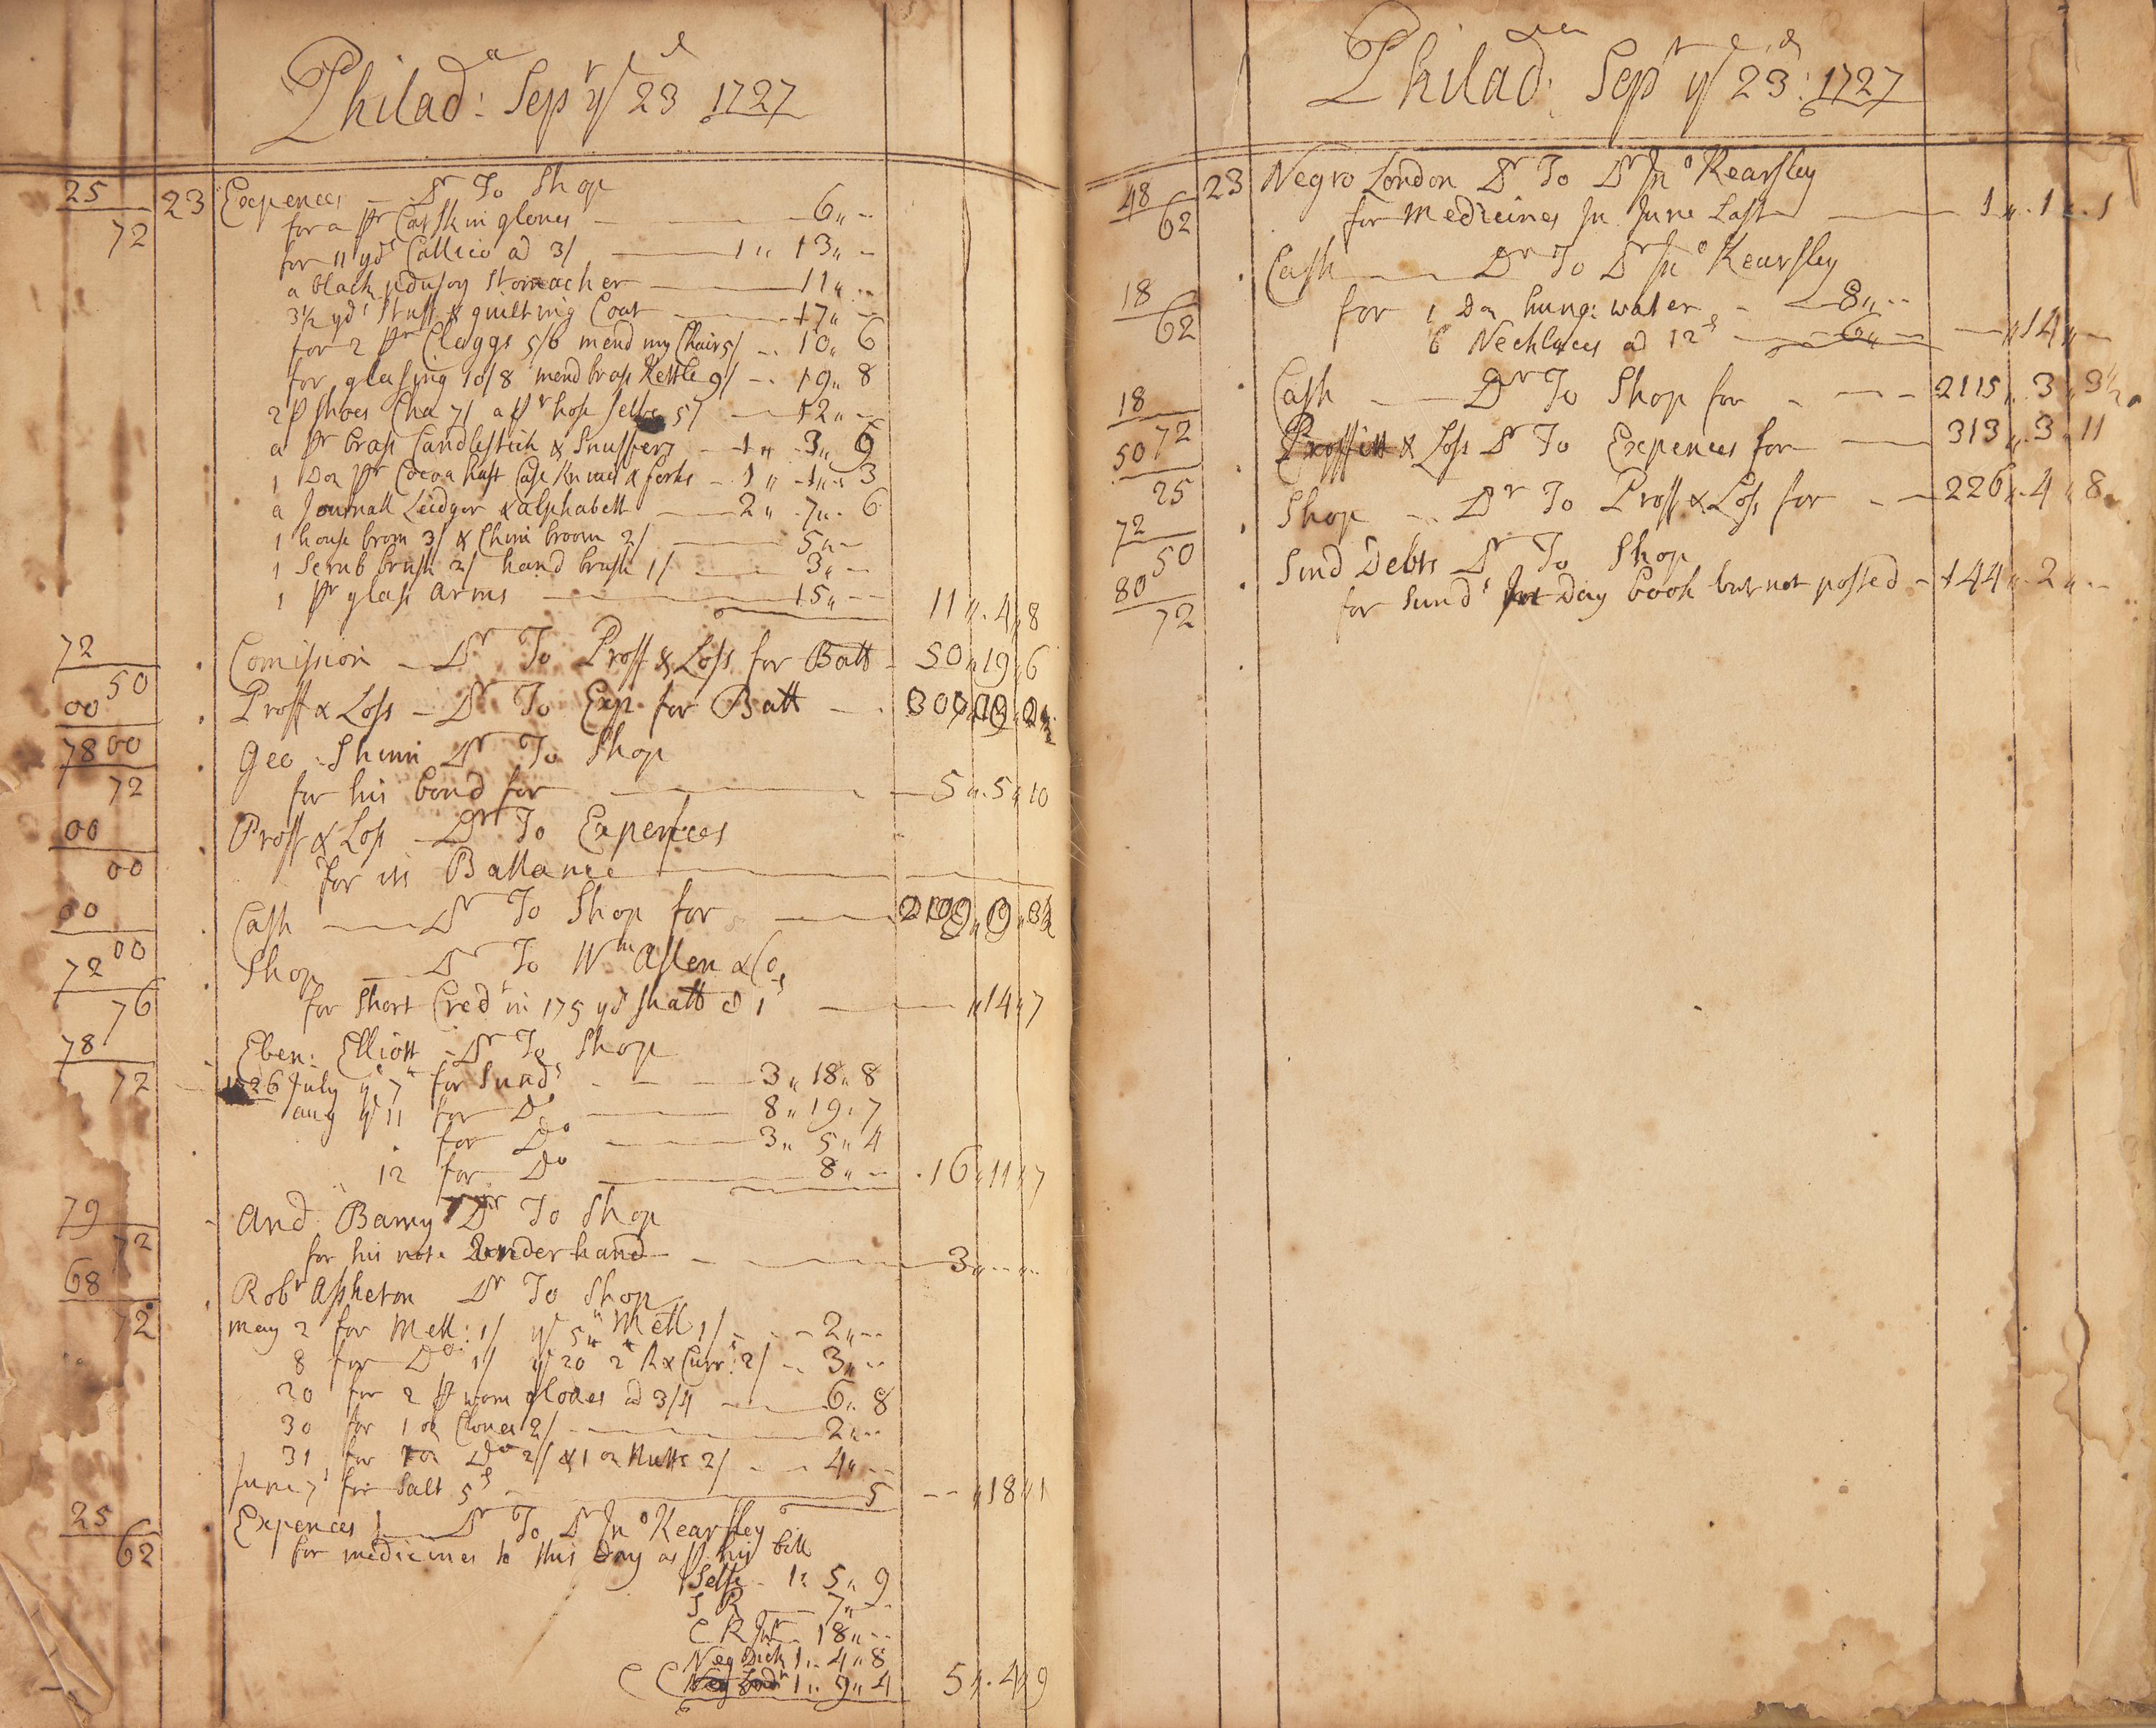 Philad^a: Sep^r y^e 23^d 1727
25/72 23 Expences — D^r To Shop
for a p^r Catskin gloves — 6,,--
for 11 yd^s Callico @ 3/ — 1,,13,,--
a black padusoy Stomacher — 11,,--
3 1/2 yd^s Stuff & quilting Coat — 17,,--
for 2 p^r Claggs 5/6 mend my Chair 5/ — 10,,6
for glasing 10/8 mend brass Kettle 9/ — 19,,8
2 p Shoes Cha 7/ a p^r hose selfe 5/ — 12,,--
a p^r brass Candlestick & Snuffers — 1,,3,,9
1 Doz p^r Cocoa haft Case Knives & forks — 1,,1,,3
a Journall Leidger & alphabett — 2,,7,,6
1 house brom 3/ & Chim broom 2/ — 5,,--
1 Scrub brush 2/ hand brush 1/ — 3,,--
1 p^r glass arms — 15,,-- 11,,4,,8
72/50 Comission — D^r To Proff & Loss for Batt — 50,,19,,6
00/00 Proff & Loss — D^r To Exp for Batt —
78/72 Geo: Shinn D^r To Shop
for his bond for — 5,,5,,10
00/00 Proff & Loss — D^r To Expences
for its Ballance —
00/00 Cash — D^r To Shop for —
72/76 Shop — D^r To W^m Allen & Co
for Short Cred^t in 175 yd @ 1^d — ,,14,,7
78/72 Eben: Elliott — D^r To Shop
1726 July y^e 7^th for Sund^s — 3,,18,,8
aug y^e 11 for D^o — 8,,19,,7
for D^o — 3,,5,,4
12 for D^o — 8,,-- 16,,11,,7
79/72 And: D^r To Shop
for his note under hand — 3,,--,,--
68/72 Rob^t Assheton D^r To Shop
May 2 for Mell: 1/ y^e 5^th Mell 1/ — 2,,--
8 for D^o 1/ y^e 20 2^lb R & Curr^s 2/ — 3,,--
20 for 2 p wom gloves @ 3/4 — 6,,8
30 for 1 oz Cloves 2/ — 2,,--
31 for 1 oz D^o 2/ & 1 oz Nutts 2/ — 4,,--
June 7 for Salt 5^d — 5 -- ,,18,,1
25/62 Expences — D^r To D^r Jn^o Kearsley
for medicines to this Day as p his bill
Selfe — 1,,5,,9
S R — 7,,--
C R Jun^r — 18,,--
Neg Dick 1,,4,,8
1,,9,,4 5,,4,,9
Philad^a: Sep^r y^e 23^d: 1727
48/62 23 Negro London D^r To D^r Jn^o Kearsley
for Medicines In June Last — 1,,1,,1
18/62 Cash — D^r To D^r Jn^o Kearsley
for 1 Doz hung: water — 8,,--
6 Necklaces @ 12^d — 6,,-- — ,,14,,--
18/72 Cash — D^r To Shop for — 2115,,3,,3 1/2
50/25 Proffitt & Loss D^r To Expences for — 313,,3,,11
72/50 Shop — D^r To Proff & Loss for — 226,,4,,8
80/72 Sund Debts D^r To Shop
for Sund^s In Day book but not posted — 144,,2,,--